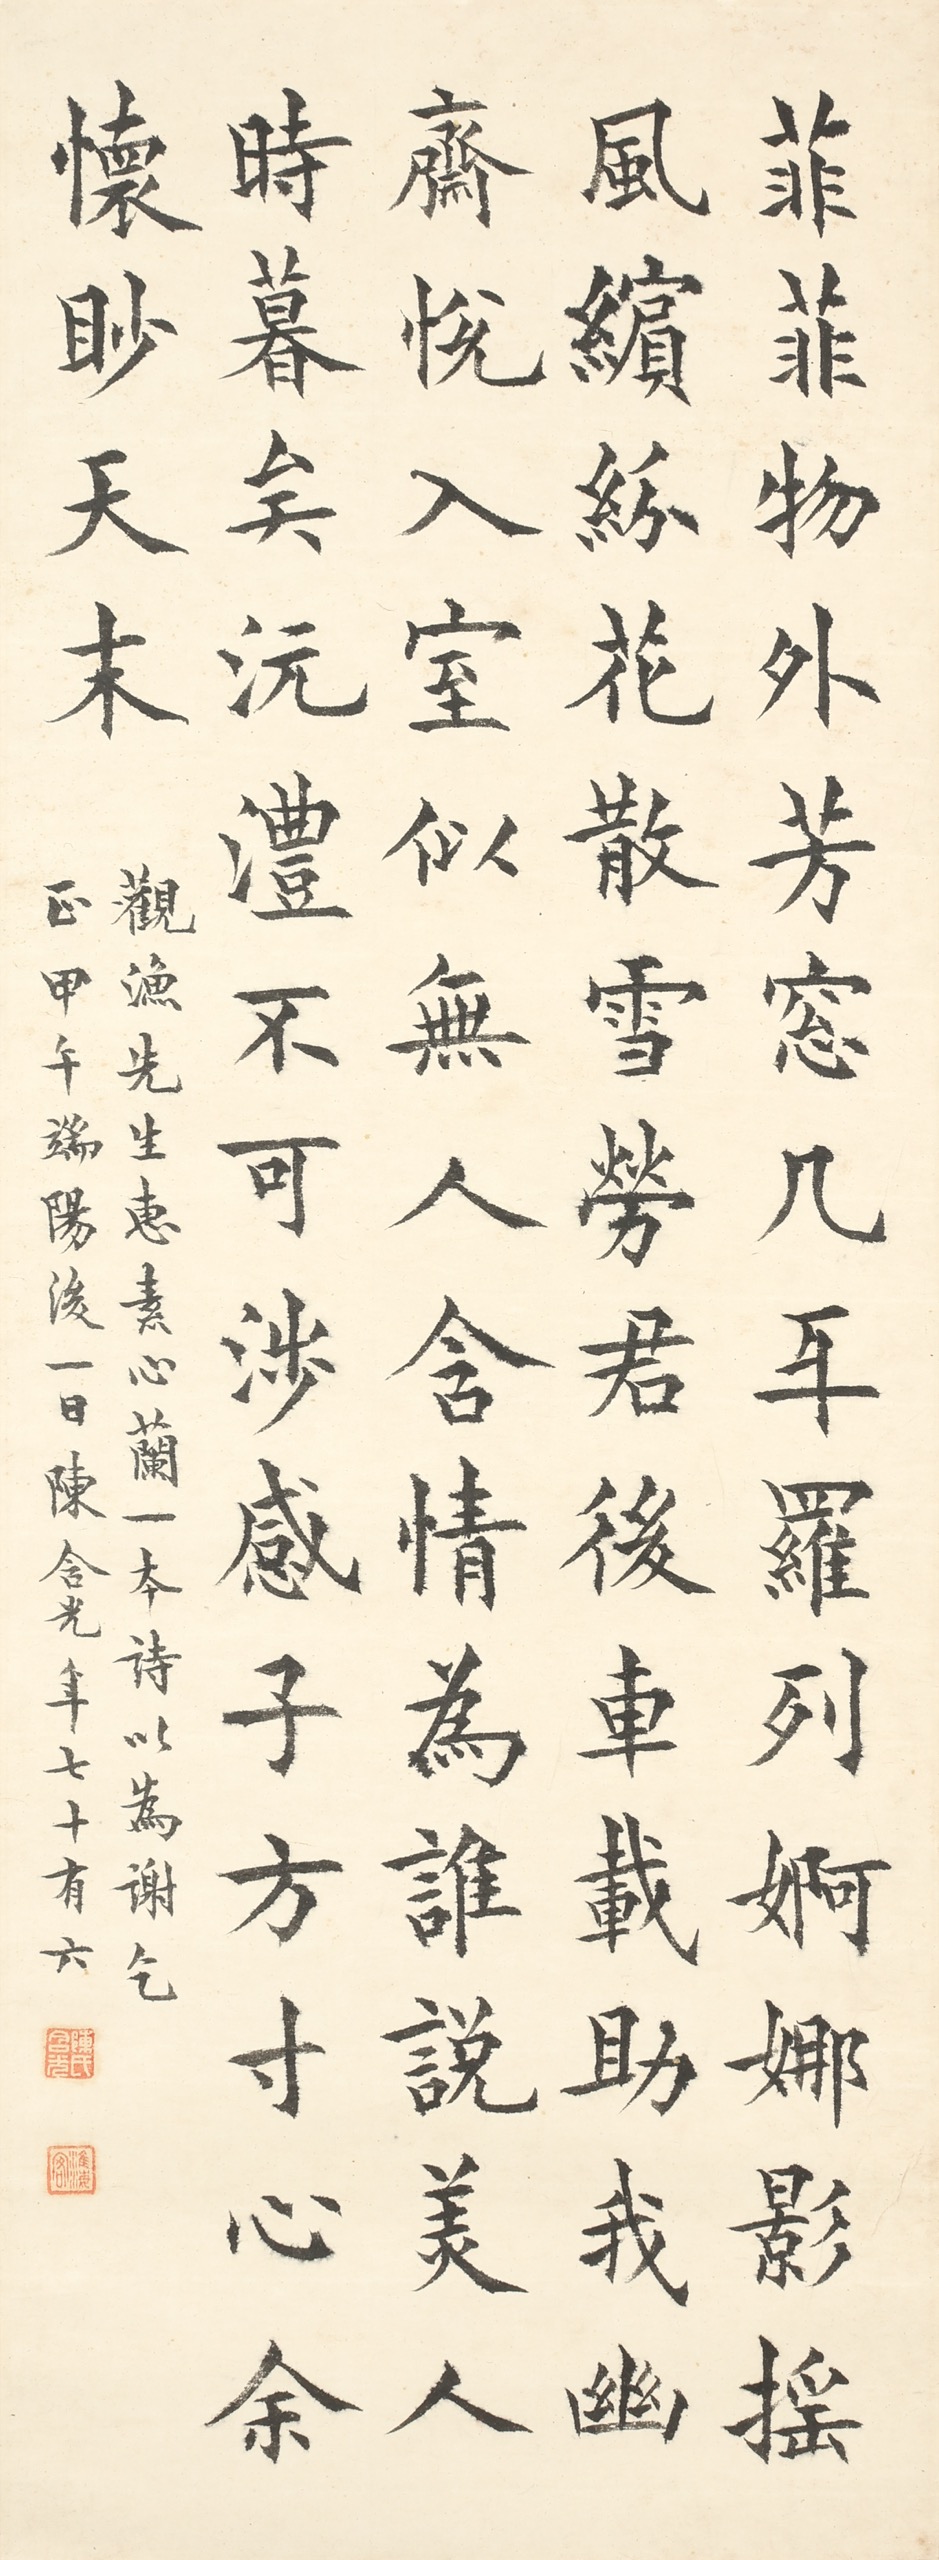 菲菲物外芳窓几耳羅列婀娜影搖
風繽紛花散雪勞君後車載助我幽
齋悅入室似無人含情為誰說美人
時暮矣沅澧不可涉感子方寸心余
懷眇天末
觀漁先生惠素心蘭一本詩以為謝乞
正甲午端陽後一日陳含光年七十有六
陳氏含光
淮海客